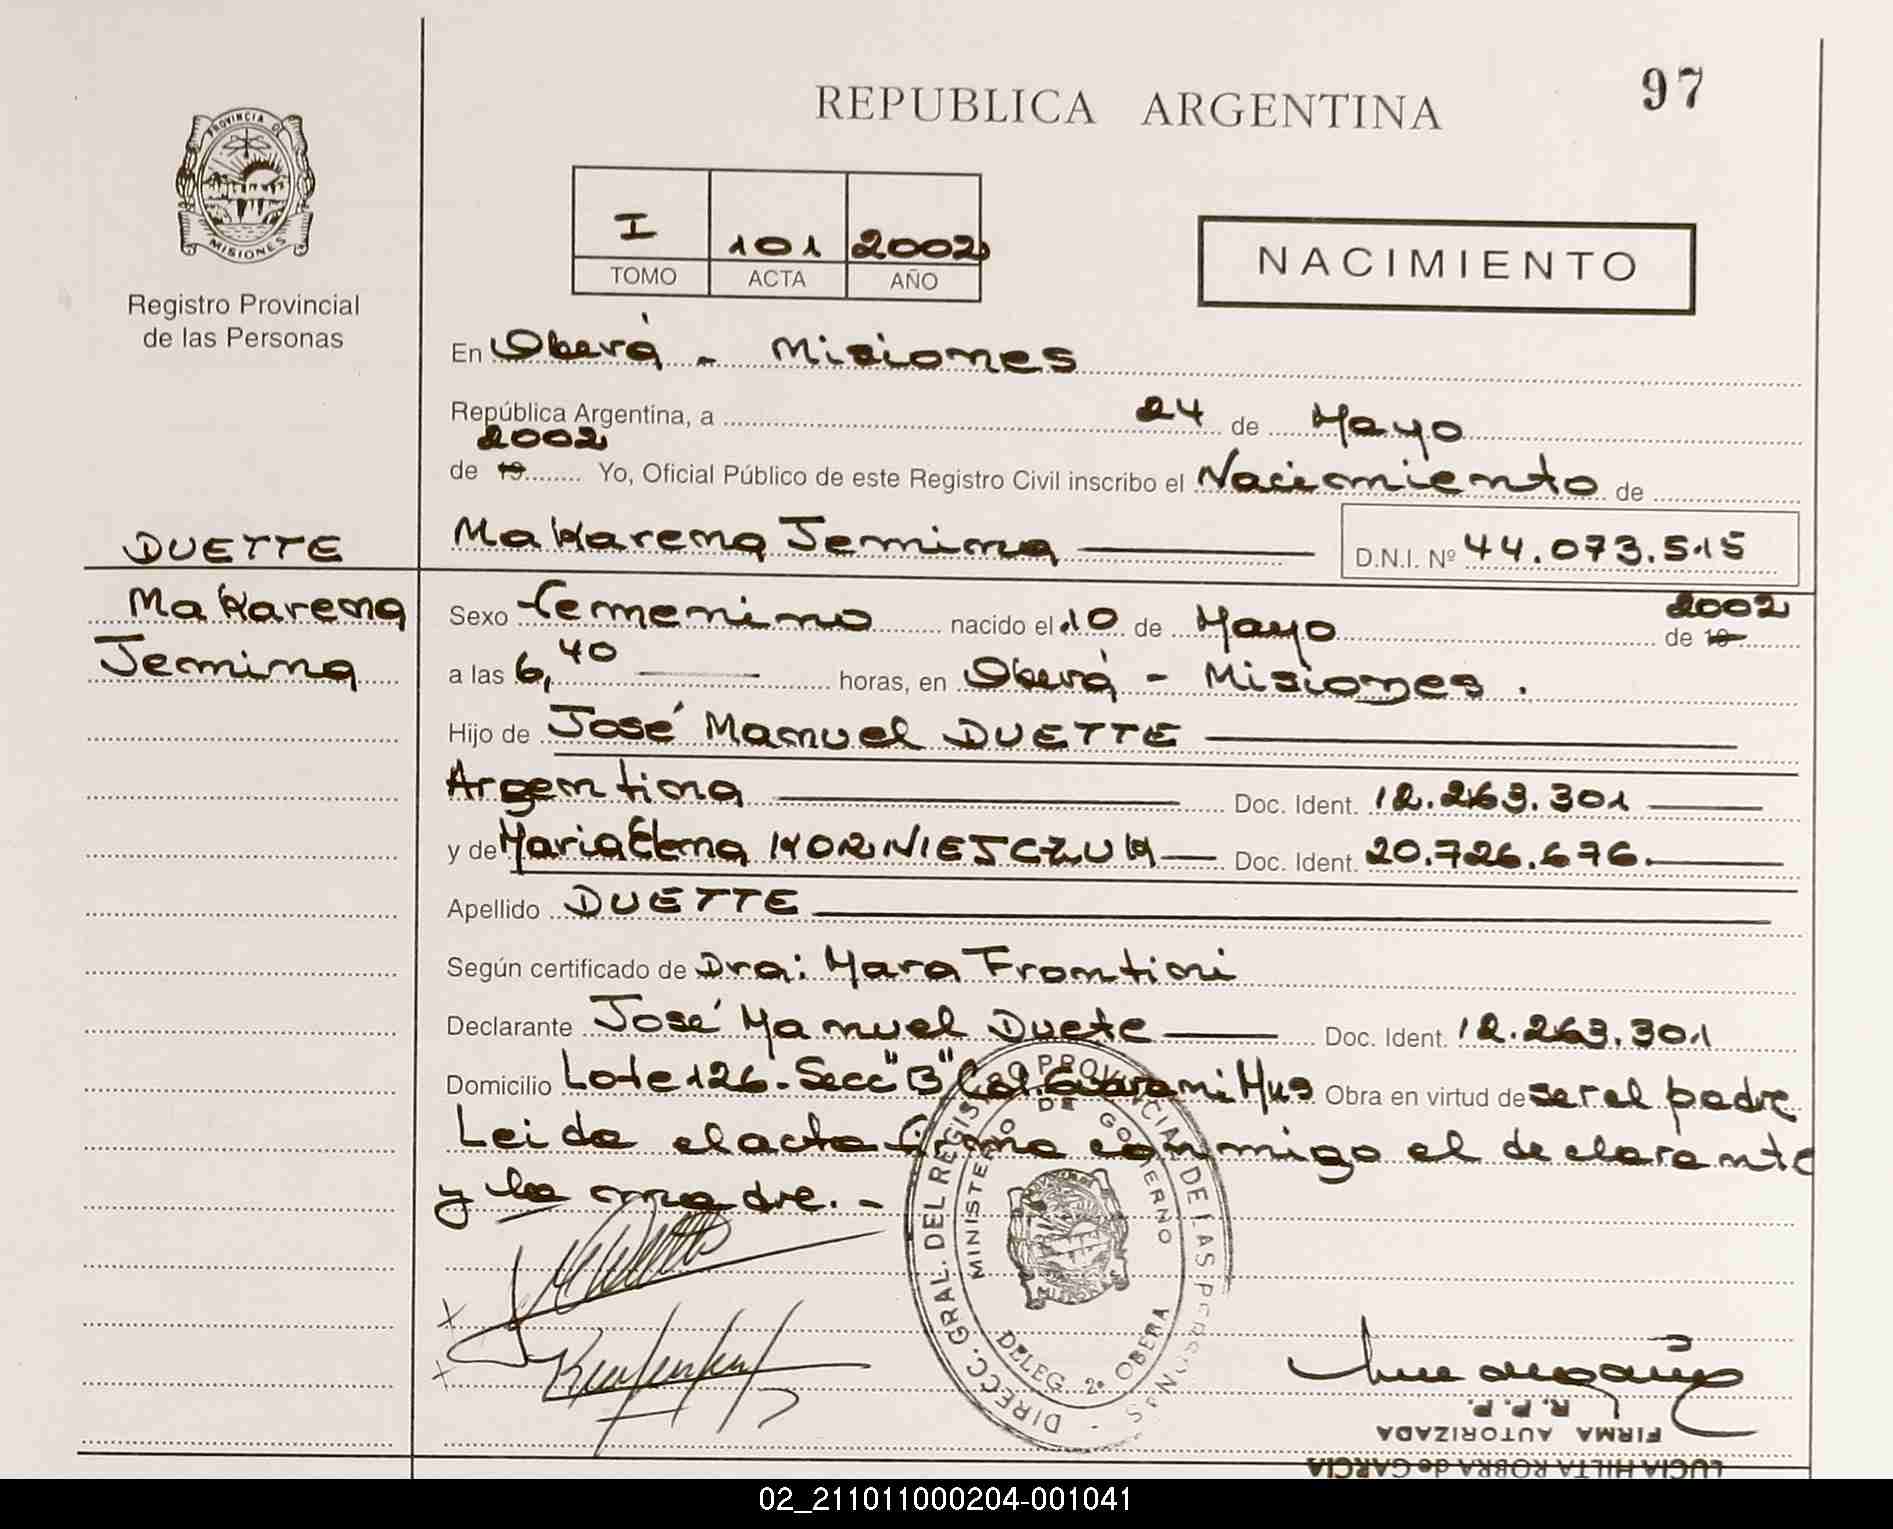 REPUBLICA ARGENTINA
97
PROVINCIA DE
MISIONES
Registro Provincial
de las Personas
I 101 2002
TOMO ACTA AÑO
NACIMIENTO
En Oberá - Misiones
República Argentina, a 24 de Mayo
2002
de 19 Yo, Oficial Público de este Registro Civil inscribo el Nacimiento de
DUETTE
Makarena Jemina D.N.I. Nº 44.073.515
Makarena
Jemina
Sexo femenino nacido el 10 de Mayo de 19 2002
a las 6,40 horas, en Oberá - Misiones.
Hijo de José Manuel DUETTE
Argentina Doc. Ident. 12.263.301
y de Maria Elena KORNIEJCZUK Doc. Ident. 20.726.676.
Apellido DUETTE
Según certificado de Dra: Mara Frontini
Declarante José Manuel Duete Doc. Ident. 12.263.301
Domicilio Lote 126-Secc "B" Col. Guarani Mns Obra en virtud de ser el padre
Leida el acta firma conmigo el declarante
y la madre.-
DIRECC. GRAL. DEL REGISTRO PROVINCIAL DE LAS PERSONAS
MINISTERIO DE GOBIERNO
DELEG. 2ª OBERA
R. P. P.
FIRMA AUTORIZADA
LUCIA HILTA ROBRA de GARCIA
02_211011000204-001041